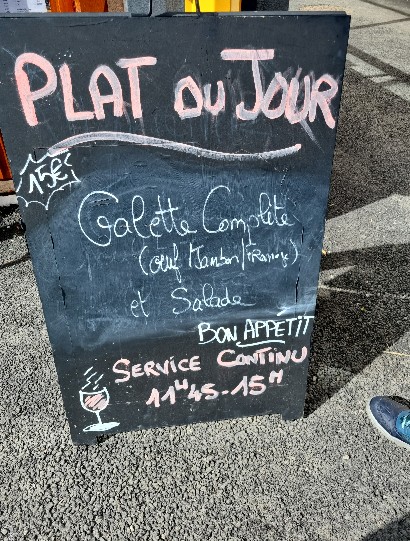 PLAT DU JOUR
15€
Galette Complète
(œuf/Jambon/Fromage)
et Salade
BON APPÉTIT
SERVICE CONTINU
11H45-15H